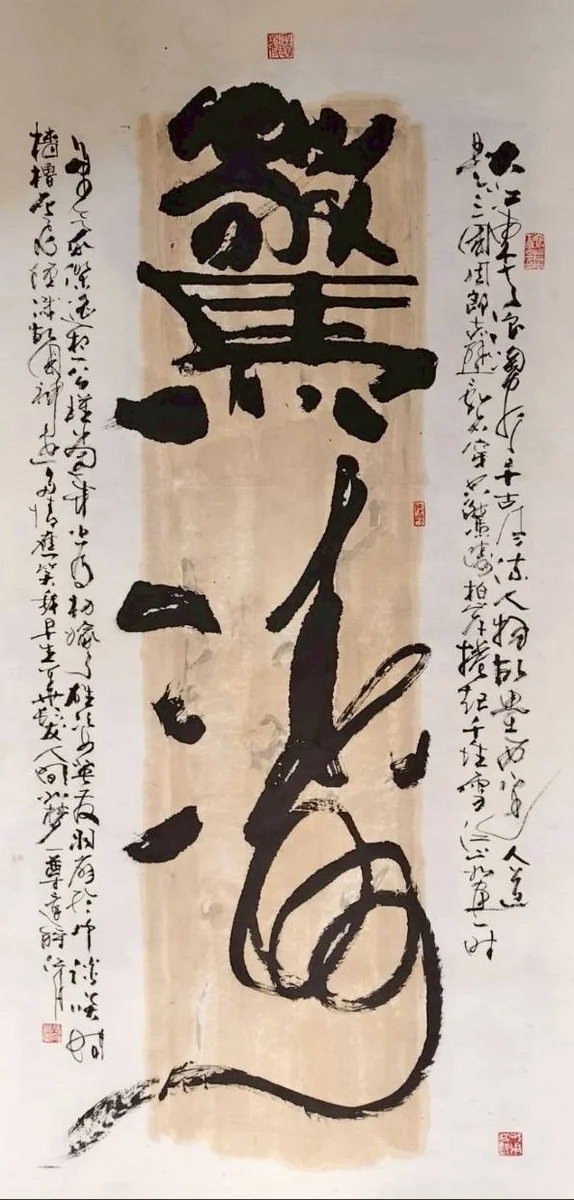 大江東去浪淘盡千古風流人物故壘西邊人道
是三國周郎赤壁亂石穿空驚濤拍岸捲起千堆雪江山如畫一時
驚濤
多少豪傑遙想公瑾當年小喬初嫁了雄姿英發羽扇綸巾談笑間
檣櫓灰飛煙滅故國神遊多情應笑我早生華髮人間如夢一尊還酹江月